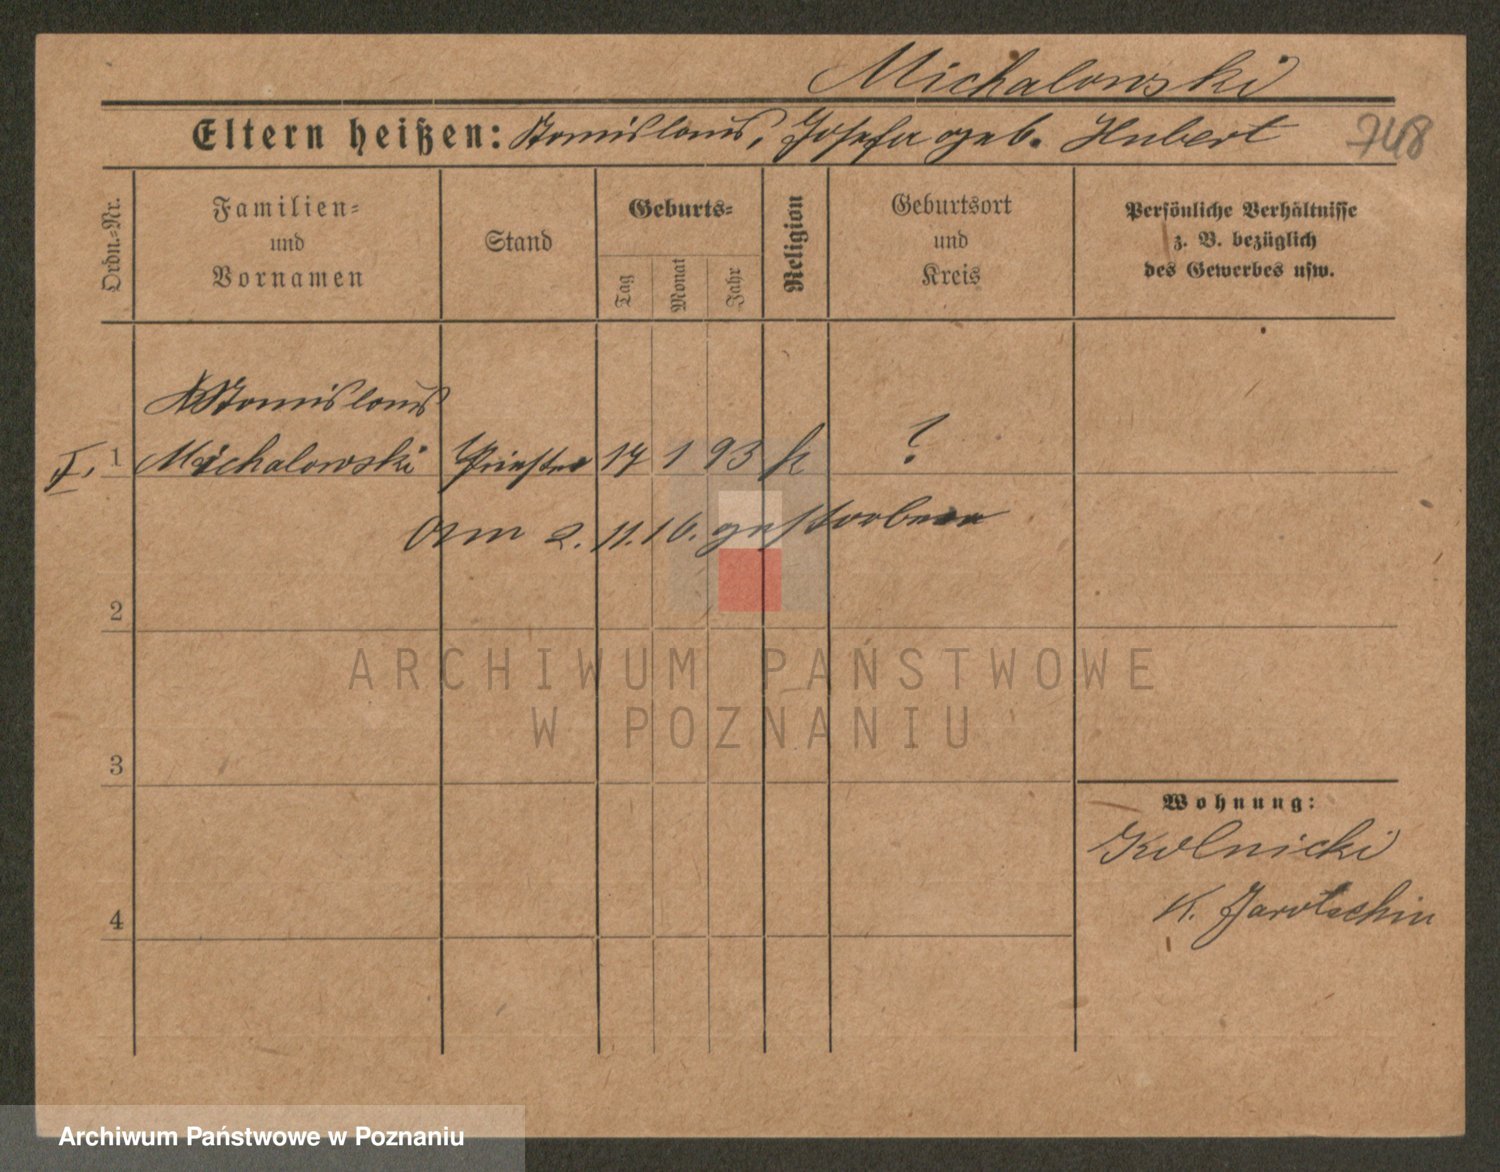 Michalowski
Eltern heißen: Stanislaus, Josefa geb. Hubert 748
Ordn.-Nr.
Familien-
und
Vornamen
Stand
Geburts-
Tag
Monat
Jahr
Religion
Geburtsort
und
Kreis
Persönliche Verhältnisse
z. B. bezüglich
des Gewerbes usw.
Stanislaus
I. 1 Michalowski Priester 17 1 93 k ?
Am 2. 11. 16. gestorben
2
3
4
Wohnung:
Kolnicki
K. Jarotschin
ARCHIWUM PAŃSTWOWE
W POZNANIU
Archiwum Państwowe w Poznaniu